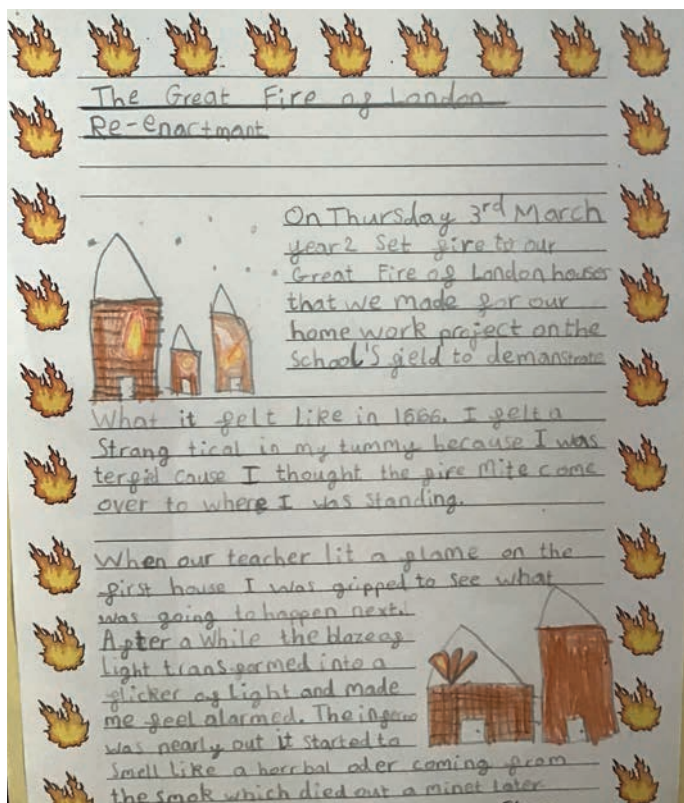 The Great Fire of London
Re-enactmant
On Thursday 3rd March
year 2 Set fire to our
Great Fire of London houses
that we made for our
home work project on the
School's field to demanstrate
What it felt like in 1666. I felt a
Strang tical in my tummy because I was
terfid cause I thought the fire Mite come
over to where I was standing.
When our teacher lit a flame on the
first house I was gripped to see what
was going to happen next.
After a while the blaze of
light transformed into a
flicker of light and made
me feel alarmed. The inferno
was nearly out it started to
Smell like a horrbal oder coming from
the smok which died out a minet later